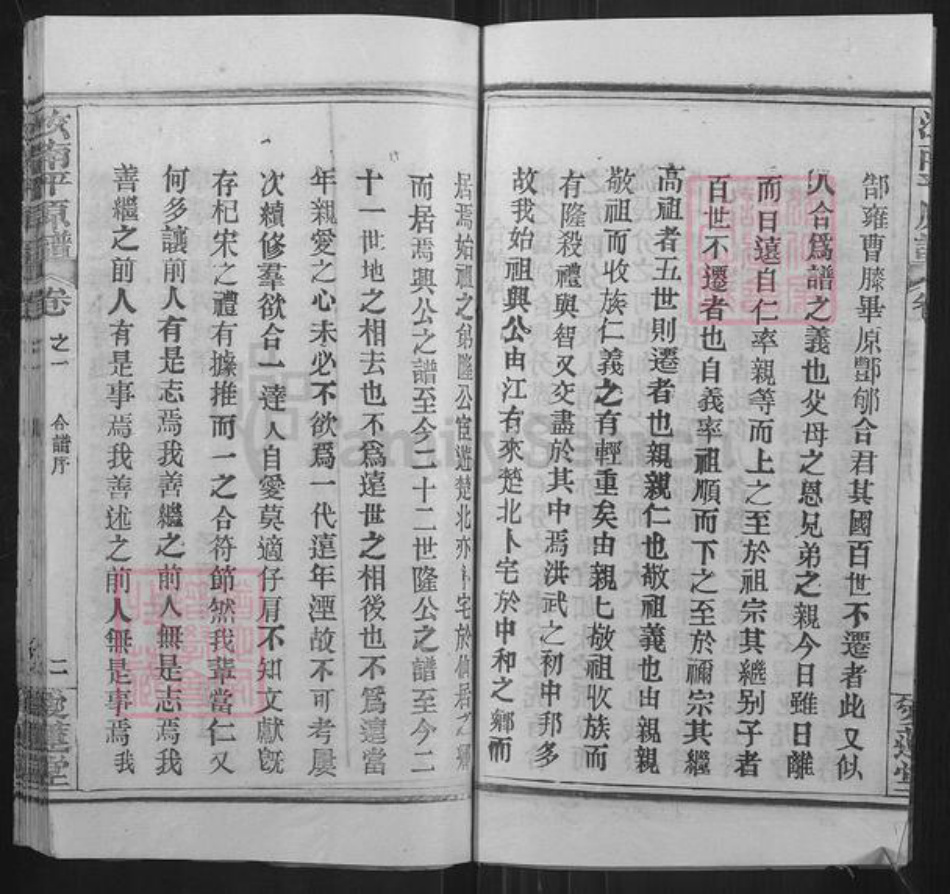 郜雍曹滕畢原酆郇合君其國百世不遷者此又似
以合爲譜之義也父母之恩兄弟之親今日雖日離
而日遠自仁率親等而上之至於祖宗其繼别子者
百世不遷者也自義率祖順而下之至於禰宗其繼
高祖者五世則遷者也親親仁也敬祖義也由親親
敬祖而收族仁義之有輕重矣由親親敬祖收族而
有隆殺禮與智又交盡於其中焉洪武之初中邦多
故我始祖興公由江右來楚北卜宅於中和之鄉而
居焉始祖之弟隆公宦遊楚北亦卜宅於仙居之鄉
而居焉興公之譜至今二十二世隆公之譜至今二
十一世地之相去也不爲遠世之相後也不爲遠當
年親愛之心未必不欲爲一代遠年湮故不可考屢
次續修羣欲合一達人自愛莫適仔肩不知文獻旣
存杞宋之禮有據推而一之合符節然我輩當仁又
何多讓前人有是志焉我善繼之前人無是志焉我
善繼之前人有是事焉我善述之前人無是事焉我
汝南平原譜
卷之一
合譜序
二
愛蓮堂
FamilySearch